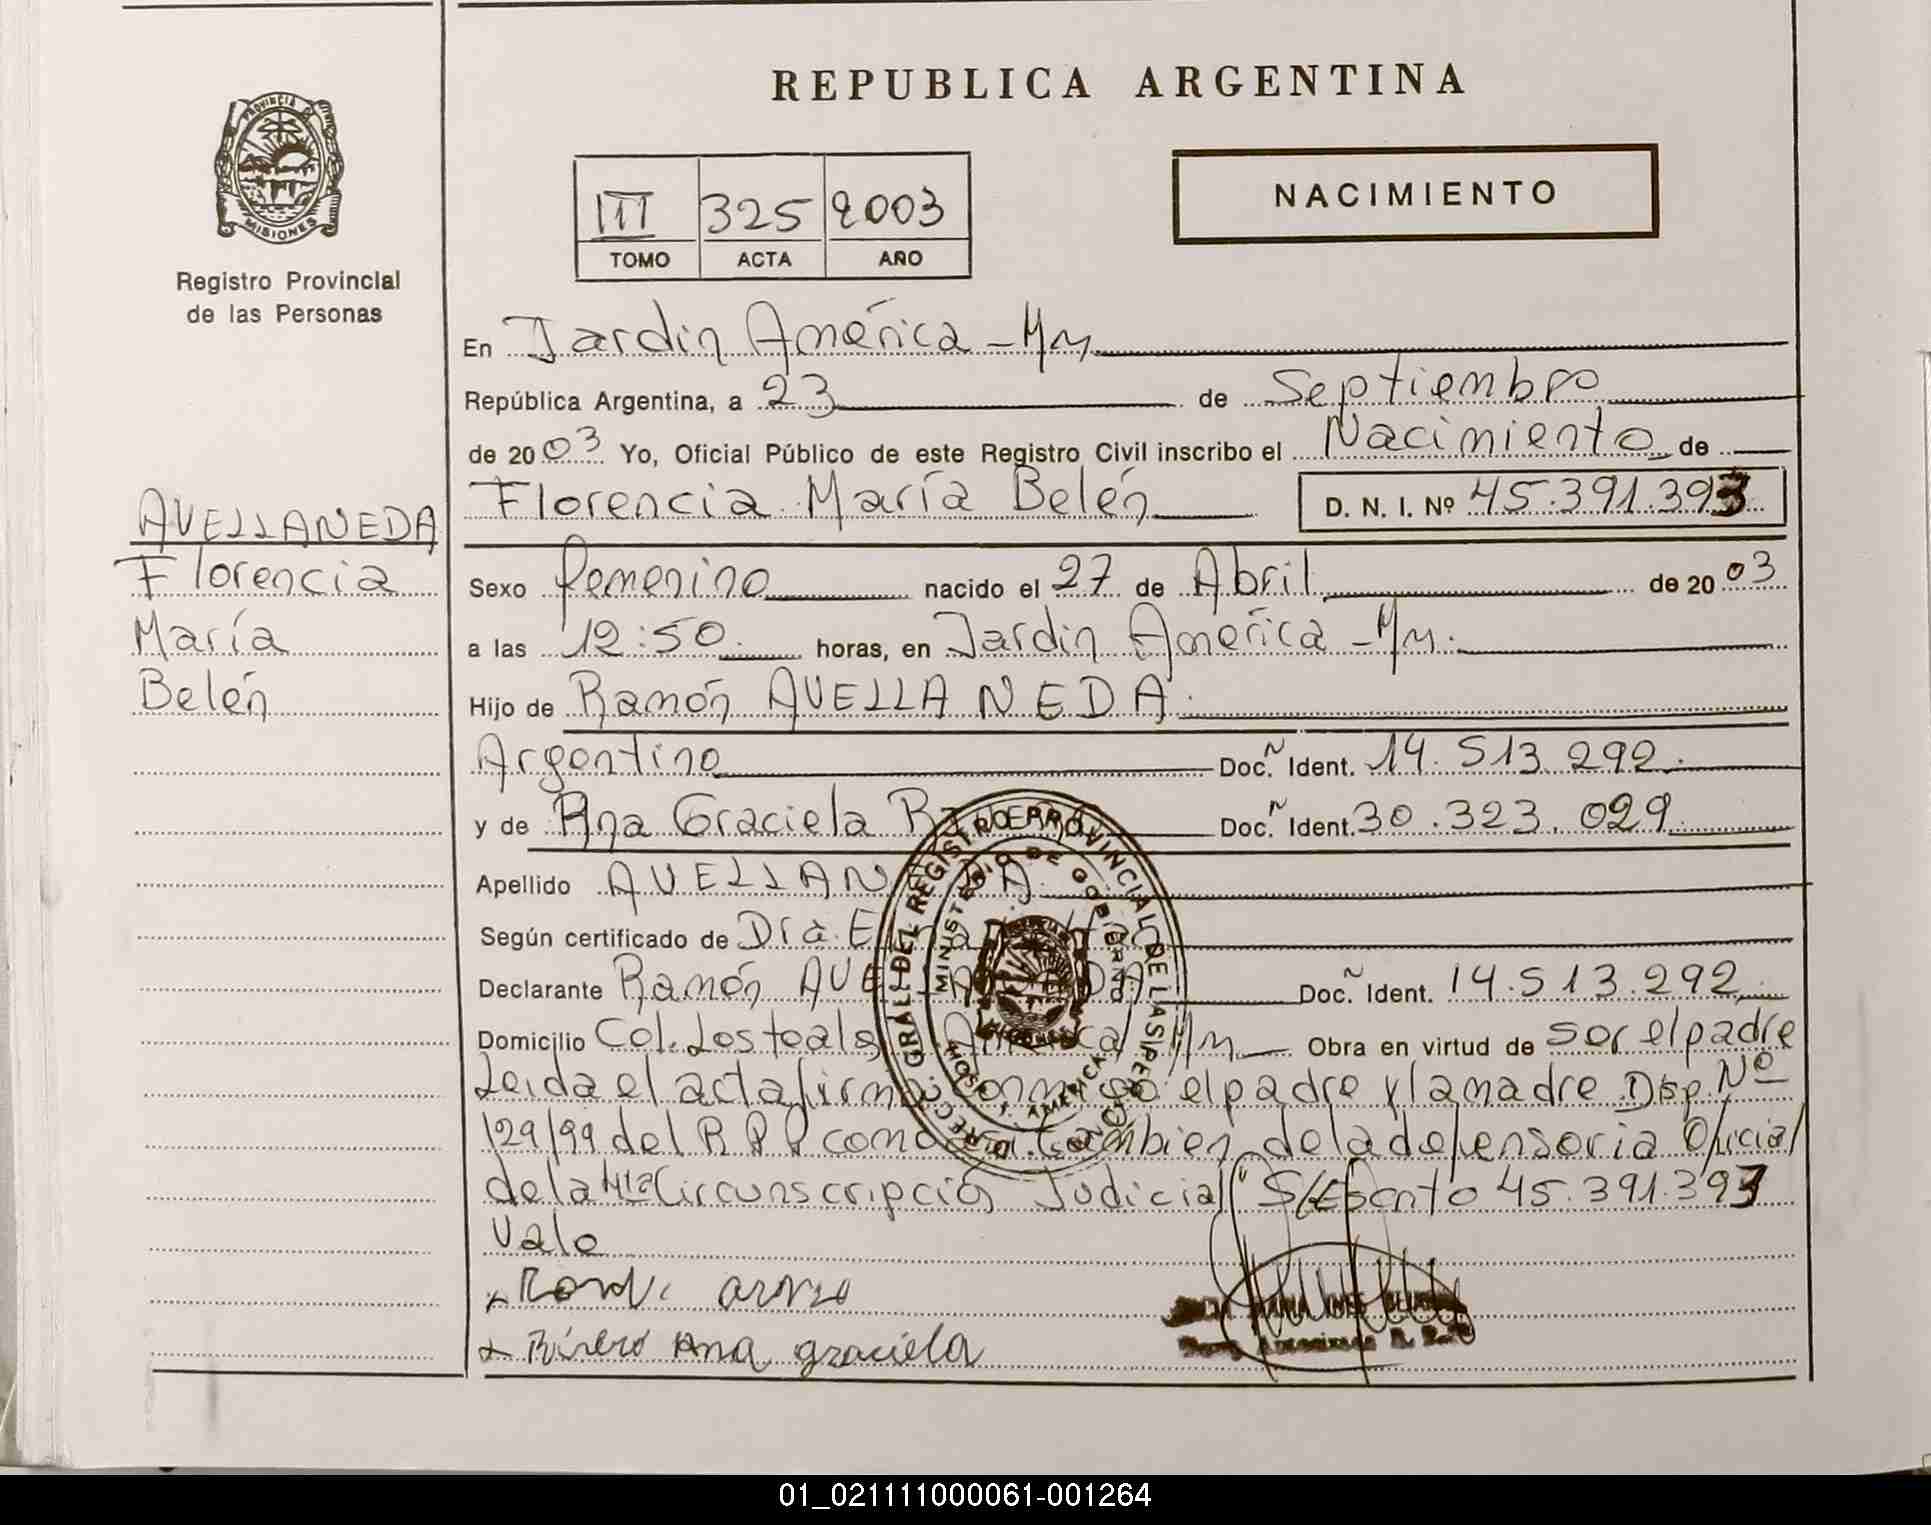 REPUBLICA ARGENTINA
PROVINCIA DE
MISIONES
Registro Provincial
de las Personas
NACIMIENTO
III 325 2003
TOMO ACTA AÑO
En Jardin América - Mnes
República Argentina, a 23 de Septiembre
de 2003 Yo, Oficial Público de este Registro Civil inscribo el Nacimiento de
Florencia María Belén D. N. I. Nº 45.391.393
AVELLANEDA
Florencia
María
Belén
Sexo femenino nacido el 27 de Abril de 2003
a las 12:50 horas, en Jardin América - Mnes.
Hijo de Ramón AVELLANEDA.
Argentino Doc. Ident. 14.513.292.
y de Ana Graciela Doc. Ident. 30.323.029
Apellido AVELLANEDA.
Según certificado de Dra.
Declarante Ramón AVELLANEDA Doc. Ident. 14.513.292
Domicilio Col. Los América Obra en virtud de ser el padre
Leida el acta firma conmigo el padre y la madre Disp. Nº
129/99 del R P P como también de la defensoria Oficial
de la 4ta Circunscripción Judicial 45.391.393
Vale
Ana graciela
DIRECC. GRAL. DEL REGISTRO PROVINCIAL DE LAS PERSONAS
MINISTERIO DE GOBIERNO
01_021111000061-001264